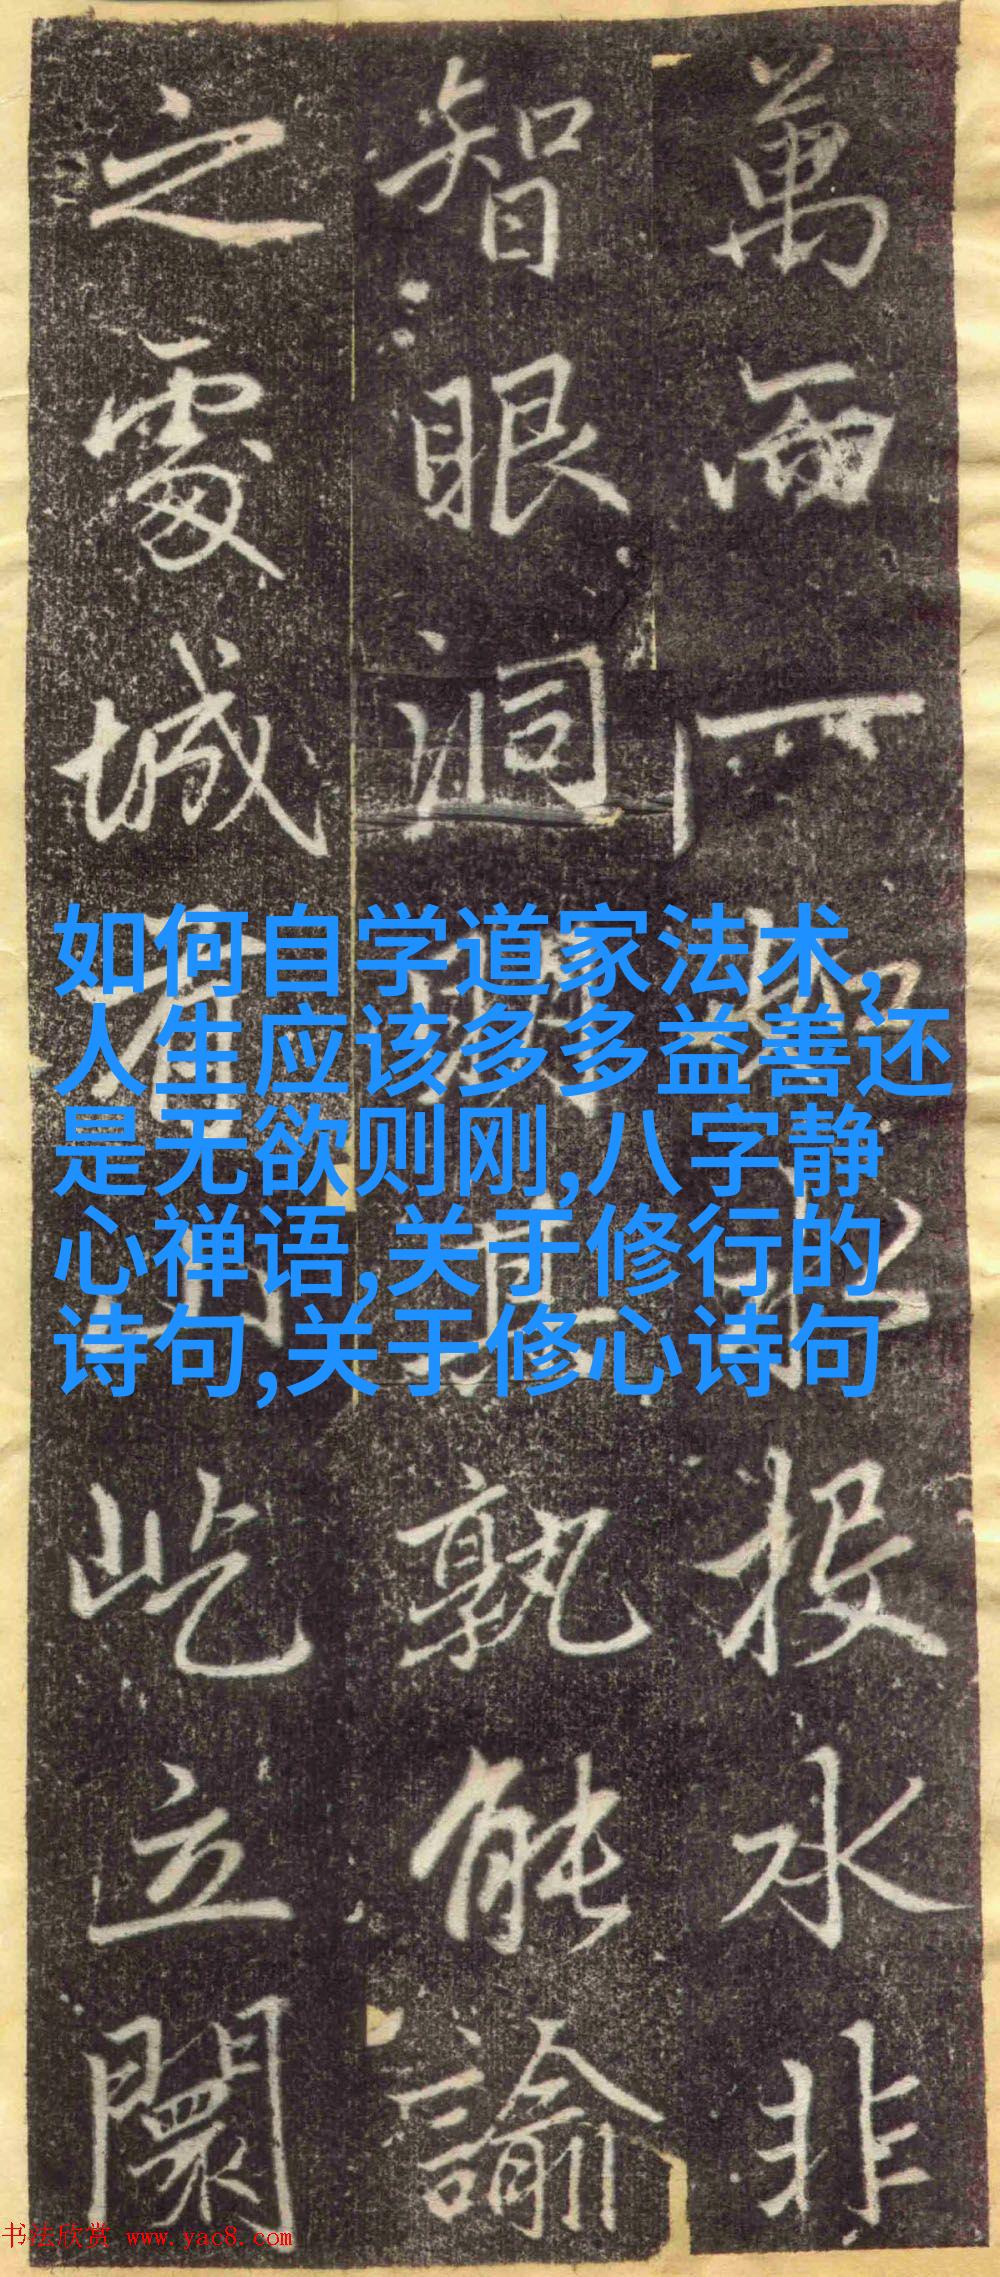 萬
而
一
投
水
非
智
眼
洞
其
孰
能
諭
之
處
城
有
屹
立
闤
如何自学道家法术,
人生应该多多益善还
是无欲则刚,八字静
心禅语,关于修行的
诗句,关于修心诗句
书法欣赏 www.yac8.com